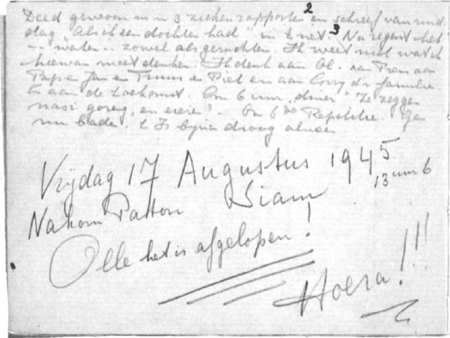 Deed gewoon m'n 3 zieken rapporten 2 en schreef van mid
dag "Als ik een dochter had" in 't net 3 Nu regent het
water zowel als geruchten. Ik weet niet wat ik
hiervan moet denken. Ik denk aan aan
Papa Jan en Truus en Piet en aan Corry d'r familie
aan de toekomst. Om 6 uur "diner" Ze zeggen
nasi goreng en eieren. Om 6 Repetitie. Ga
nu baden. 't Is bijna droog alweer
Vrijdag 17 Augustus 1945
13 uur 6
Nakom Patton Siam
Olle het is afgelopen!
Hoera!!!